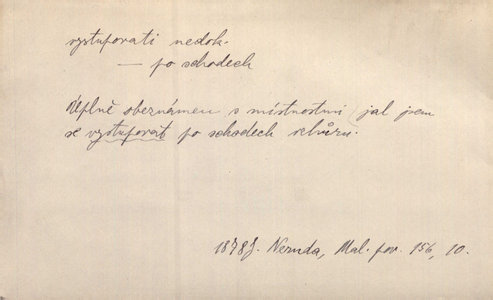 vystupovati nedok.
— po schodech
Úplně obeznámen s místnostmi jal jsem
se vystupovat po schodech vzhůru.
1878 J. Neruda, Mal. pov. 156, 10.